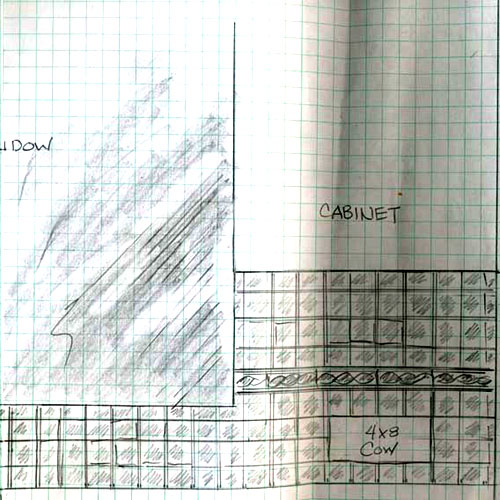 CABINET
4x8
Cow